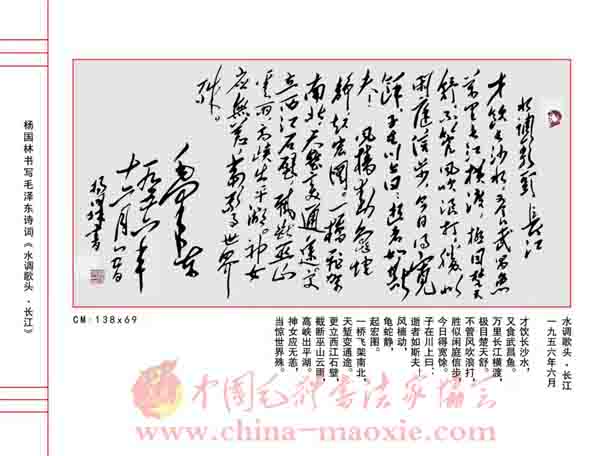 杨国林书写毛泽东诗词《水调歌头·长江》
水调歌头 长江
才饮长沙水又食武昌鱼
万里长江横渡极目楚天
舒不管风吹浪打胜似
闲庭信步今日得宽
馀子在川上曰逝者如斯
夫 风樯动龟蛇
静起宏图一桥飞架
南北天堑变通途更
立西江石壁截断巫山
云雨高峡出平湖神女
应無恙当惊世界
殊。
毛泽东
一九五六年
十二月
书
CM:138x69
水调歌头·长江
一九五六年六月
才饮长沙水，
又食武昌鱼。
万里长江横渡，
极目楚天舒。
不管风吹浪打，
胜似闲庭信步，
今日得宽馀。
子在川上曰：
逝者如斯夫
风樯动，
龟蛇静，
起宏图。
一桥飞架南北，
天堑变通途。
更立西江石壁，
截断巫山云雨，
高峡出平湖。
神女应无恙，
当惊世界殊。
中国毛体书法家协会
www.china-maoxie.com